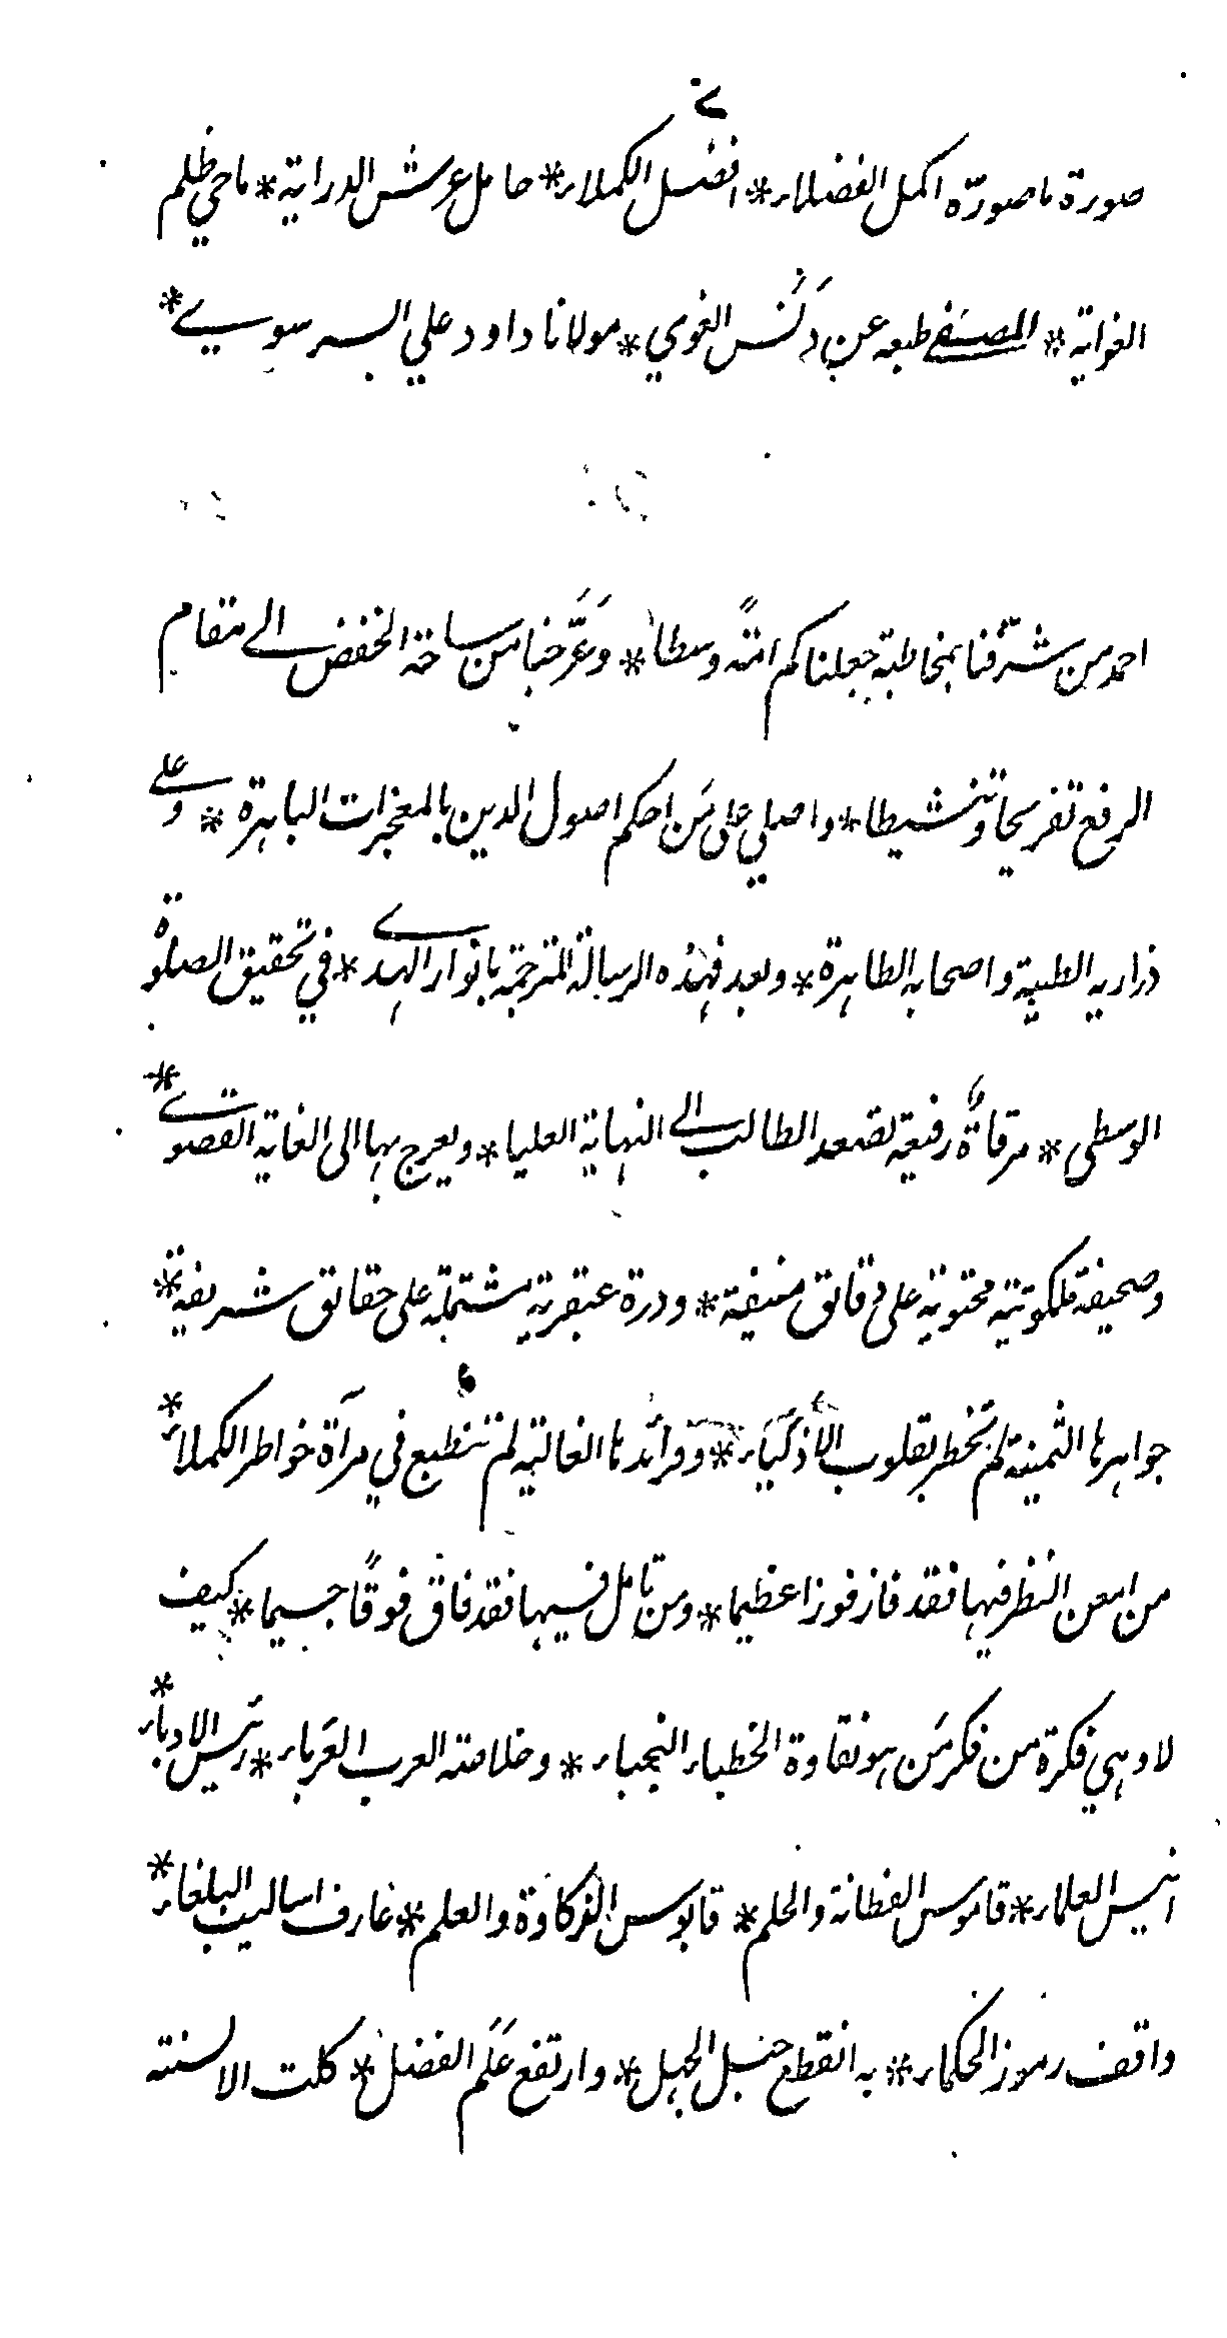 صورة ما صورّه اكمل الفضلاء * افضل الكملاء * حامل عرش الدراية * ماحي ظلم
الغواية * المصفے طبعه عن دَنَس الغوي * مولانا داود علي السرسوے *
احمد من شرّفنا بمخاطبة جعلناكم امّةً وسطا * وَعَرَّجنا من ساحة الخفض الے مقام
الرفع تفريحا وتنشيطا * واصلي على مَن احكم اصول الدين بالمعجزات الباهرة * وعلے
ذراريه الطيبة واصحابه الطاهرة * وبعد فهذه الرسالة المترجمة بانوار الهدے * في تحقيق الصلوٰة
الوسطى * مرقاةٌ رفيعة لصعد الطالب الے النهاية العليا * ويعرج بها الى الغاية القصوے *
وصحيفة ملكوتية محتوية على دقائق منيفة * ودرة عبقرية مشتملة على حقائق شريفة *
جواهرها الثمينة لم تخطر بقلوب الاذكَيَاء * وفرائدها الغالية لم تنطبع في مرآة خواطر الكملاء *
من امعن النظر فيها فقد فاز فوزا عظيما * ومن تامل فيها فقد فاق فوقًا جسيما * كيف
لا وهي فكرة من فكر مَن هو نقاوة الخطباء النجباء * وخلاصة العرب العَرباء * رئيس الادباء *
انيس العلماء * قاموس الفطانة والحلم * قابوس الزكاوة والعلم * عارف اساليب البلغاء *
واقف رموز الحكماء * به انقطع حبل الجهل * وارتفع عَلَم الفضل * كلت الالسنة